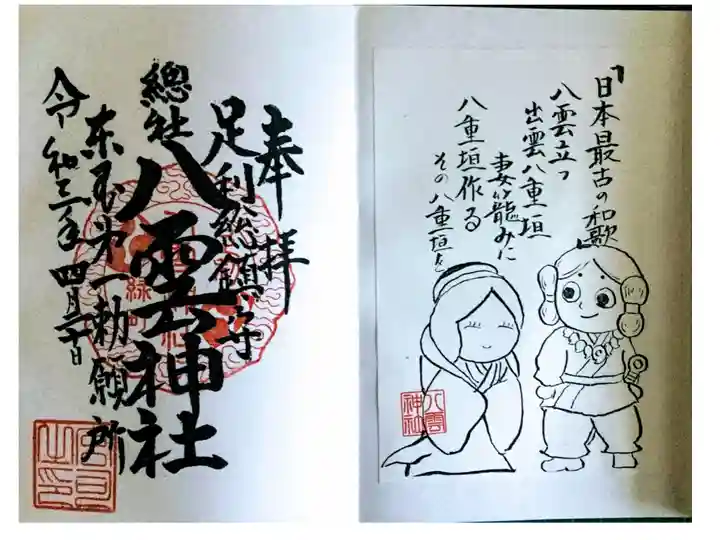 奉拝
足利総鎮守
總社八雲神社
東国第一勅願所
令和三年四月三十日
緑町
「日本最古の和歌」
八雲立つ
出雲八重垣
妻籠みに
八重垣作る
その八重垣を
八雲
神社